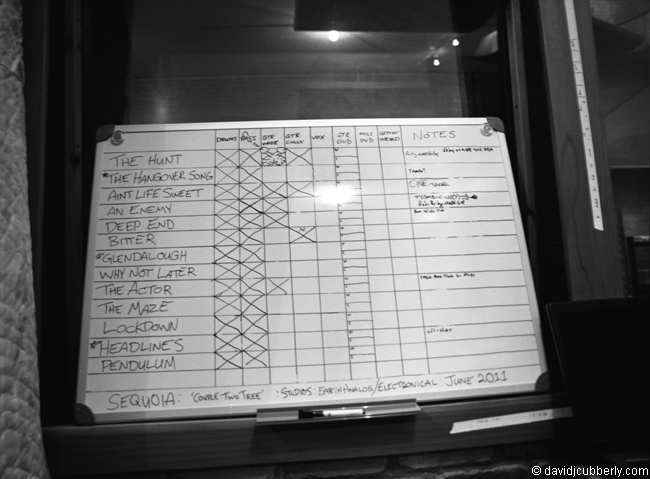 DRUMS BASS GTR WADE GTR CULLY VOX GTR OVD MISC OVD GETTIN' WEIRD NOTES
THE HUNT
*THE HANGOVER SONG
AINT LIFE SWEET ONE MORE
AN ENEMY
DEEP END
BITTER
*GLENDALOUGH
WHY NOT LATER
THE ACTOR
THE MAZE
LOCKDOWN
*HEADLINES HI-HAT
PENDULUM
SEQUOIA: 'COUPLE TWO TREE' : STUDIOS: EARTH ANALOG/ELECTRONICAL JUNE 2011
© davidjcubberly.com